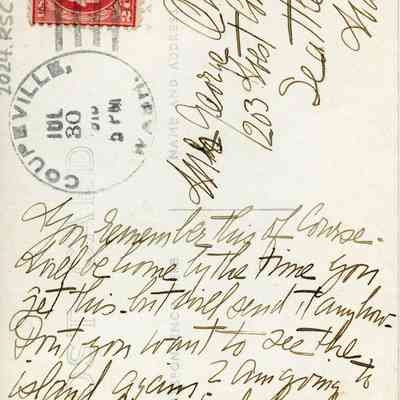 2024.RSC
COUPEVILLE,
WASH.
JUL
30
2 PM
NAME AND ADDRESS
Mrs George
203
Seattle
You remember this of Course.
Will be home by the time you
get this but will send it anyhow.
Don't you want to see the
island again? I am going to